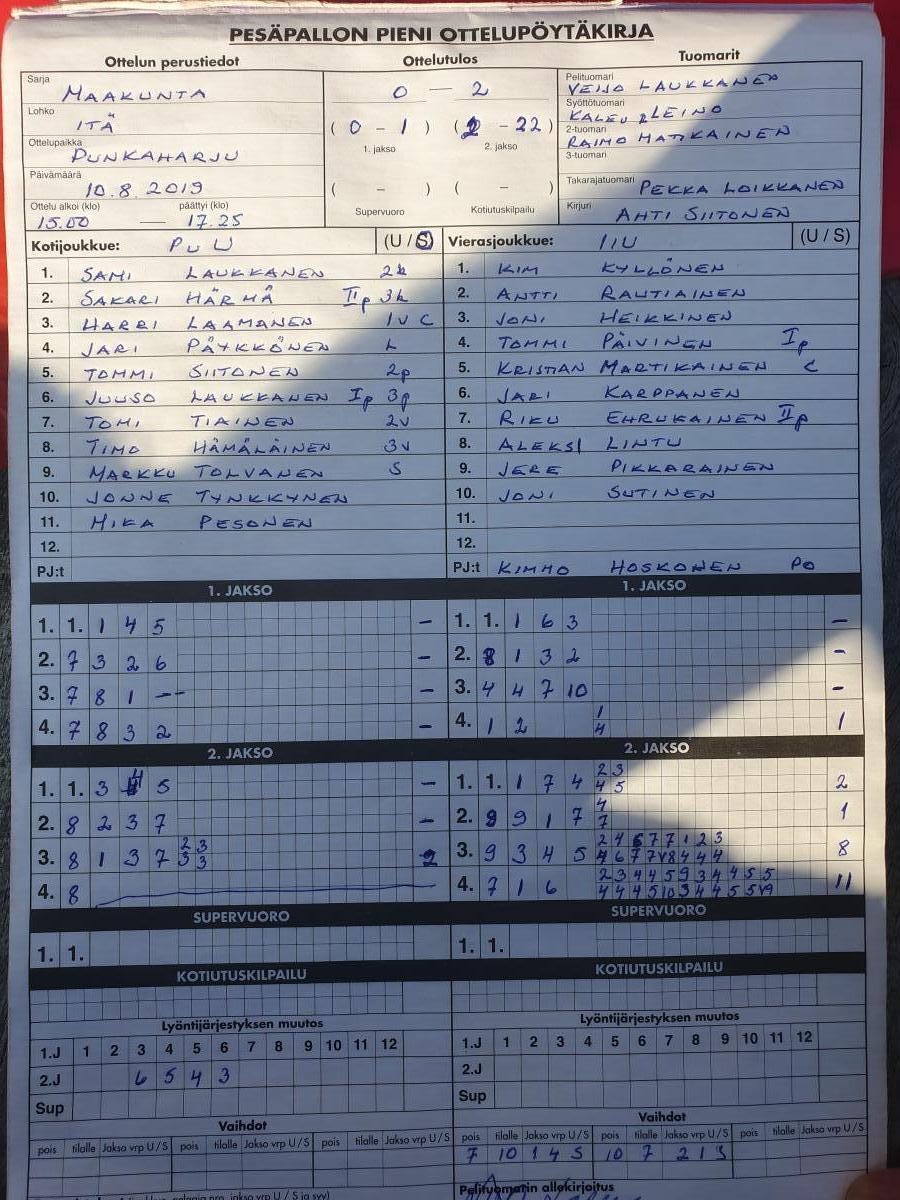 PESÄPALLON PIENI OTTELUPÖYTÄKIRJA
Ottelun perustiedot Ottelutulos Tuomarit
Sarja MAAKUNTA
Lohko ITÄ
Ottelupaikka PUNKAHARJU
Päivämäärä 10.8.2019
Ottelu alkoi (klo) päättyi (klo)
15.00 — 17.25
0 — 2
( 0 - 1 ) ( 2 - 22 )
1. jakso 2. jakso
( - ) ( - )
Supervuoro Kotiutuskilpailu
Pelituomari VEIJO LAUKKANEN
Syöttötuomari KALEVI LEINO
2-tuomari RAIMO MATIKAINEN
3-tuomari
Takarajatuomari PEKKA LOIKKANEN
Kirjuri AHTI SIITONEN
Kotijoukkue: PUU (U / S) Vierasjoukkue: IIU (U / S)
1. SAMI LAUKKANEN 2k 1. KIM KYLLÖNEN
2. SAKARI HÄRMÄ IIp 3k 2. ANTTI RAUTIAINEN
3. HARRI LAAMANEN 1v C 3. JONI HEIKKINEN
4. JARI PÄYKKÖNEN L 4. TOMMI PÄIVINEN Ip
5. TOMMI SIITONEN 2p 5. KRISTIAN MARTIKAINEN C
6. JUUSO LAUKKANEN Ip 3p 6. JARI KARPPANEN
7. TOMI TIAINEN 2v 7. RIKU EHRUKAINEN IIp
8. TIMO HÄMÄLÄINEN 3v 8. ALEKSI LINTU
9. MARKKU TOLVANEN S 9. JERE PIKKARAINEN
10. JONNE TYNKKYNEN 10. JONI SUTINEN
11. MIKA PESONEN 11.
12. 12.
PJ:t PJ:t KIMMO HOSKONEN PO
1. JAKSO 1. JAKSO
1. 1. 1 4 5 – 1. 1. 1 6 3 –
2. 7 3 2 6 – 2. 8 1 3 2 –
3. 7 8 1 -- – 3. 4 4 7 10 –
4. 7 8 3 2 – 4. 1 2 1 4 1
2. JAKSO 2. JAKSO
1. 1. 3 4 5 – 1. 1. 1 7 4 2 3 4 5 2
2. 8 2 3 7 – 2. 9 9 1 7 4 7 1
3. 8 1 3 7 2 3 3 3 2 3. 9 3 4 5 2 4 6 7 7 1 2 3 4 6 7 7 V8 4 4 4 8
4. 8 4. 7 1 6 2 3 4 4 5 9 3 4 4 5 5 4 4 4 5 10 3 4 4 5 5 V9 11
SUPERVUORO SUPERVUORO
1. 1. 1. 1.
KOTIUTUSKILPAILU KOTIUTUSKILPAILU
Lyöntijärjestyksen muutos Lyöntijärjestyksen muutos
1.J 1 2 3 4 5 6 7 8 9 10 11 12 1.J 1 2 3 4 5 6 7 8 9 10 11 12
2.J 6 5 4 3 2.J
Sup Sup
Vaihdot Vaihdot
pois tilalle Jakso vrp U / S pois tilalle Jakso vrp U / S pois tilalle Jakso vrp U / S pois tilalle Jakso vrp U / S pois tilalle Jakso vrp U / S pois tilalle Jakso vrp U / S
7 10 1 4 S 10 7 2 1 S
Pelituomarin allekirjoitus